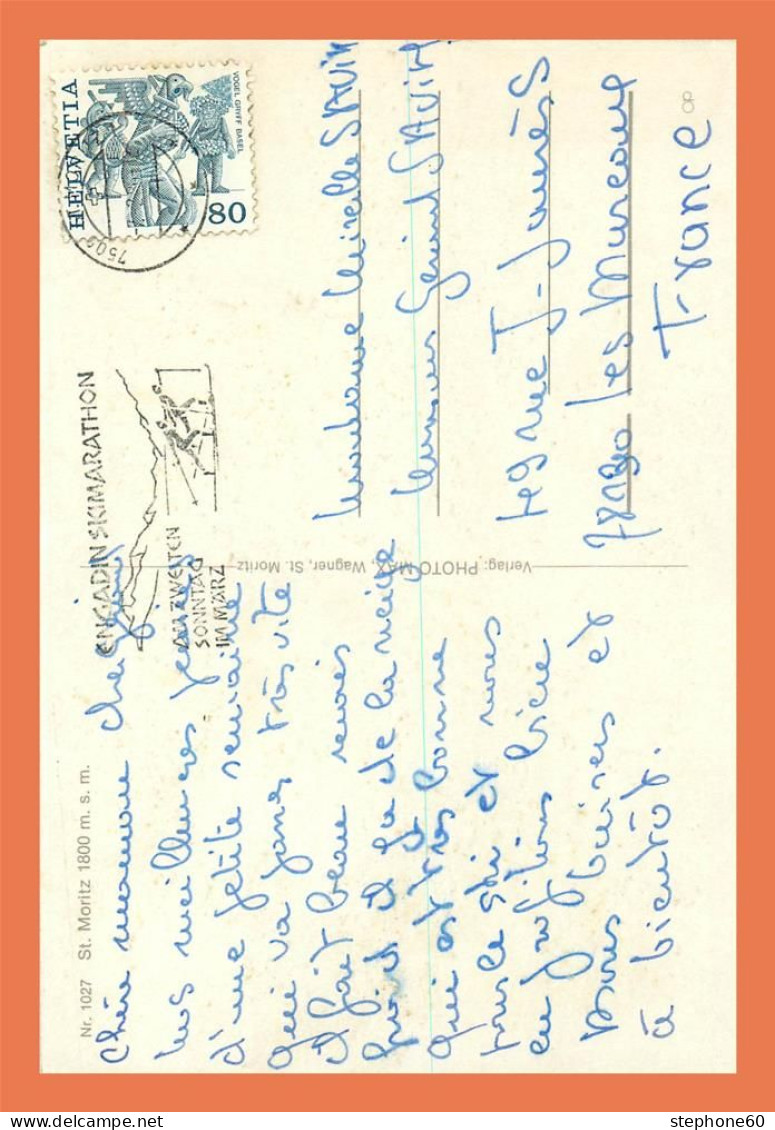 Nr. 1027 St. Moritz 1800 m. s. m.
Chère maman cher
nos meilleures pensées
d'une petite semaine
qui va passer très vite
Il fait beau mais
froid il y a de la neige
qui est très bonne
pour le ski et nous
en profitons bien
Bons baisers et
à bientôt.
HELVETIA
VOGEL GRYFF BASEL
80
750
ENGADIN SKIMARATHON
AM ZWEITEN
SONNTAG
IM MÄRZ
Verlag: PHOTO MAX, Wagner, St. Moritz
Madame Mireille SAVIN
Monsieur Gérard SAVIN
49 rue J-Jaurès
les Mureaux
France
stephone60